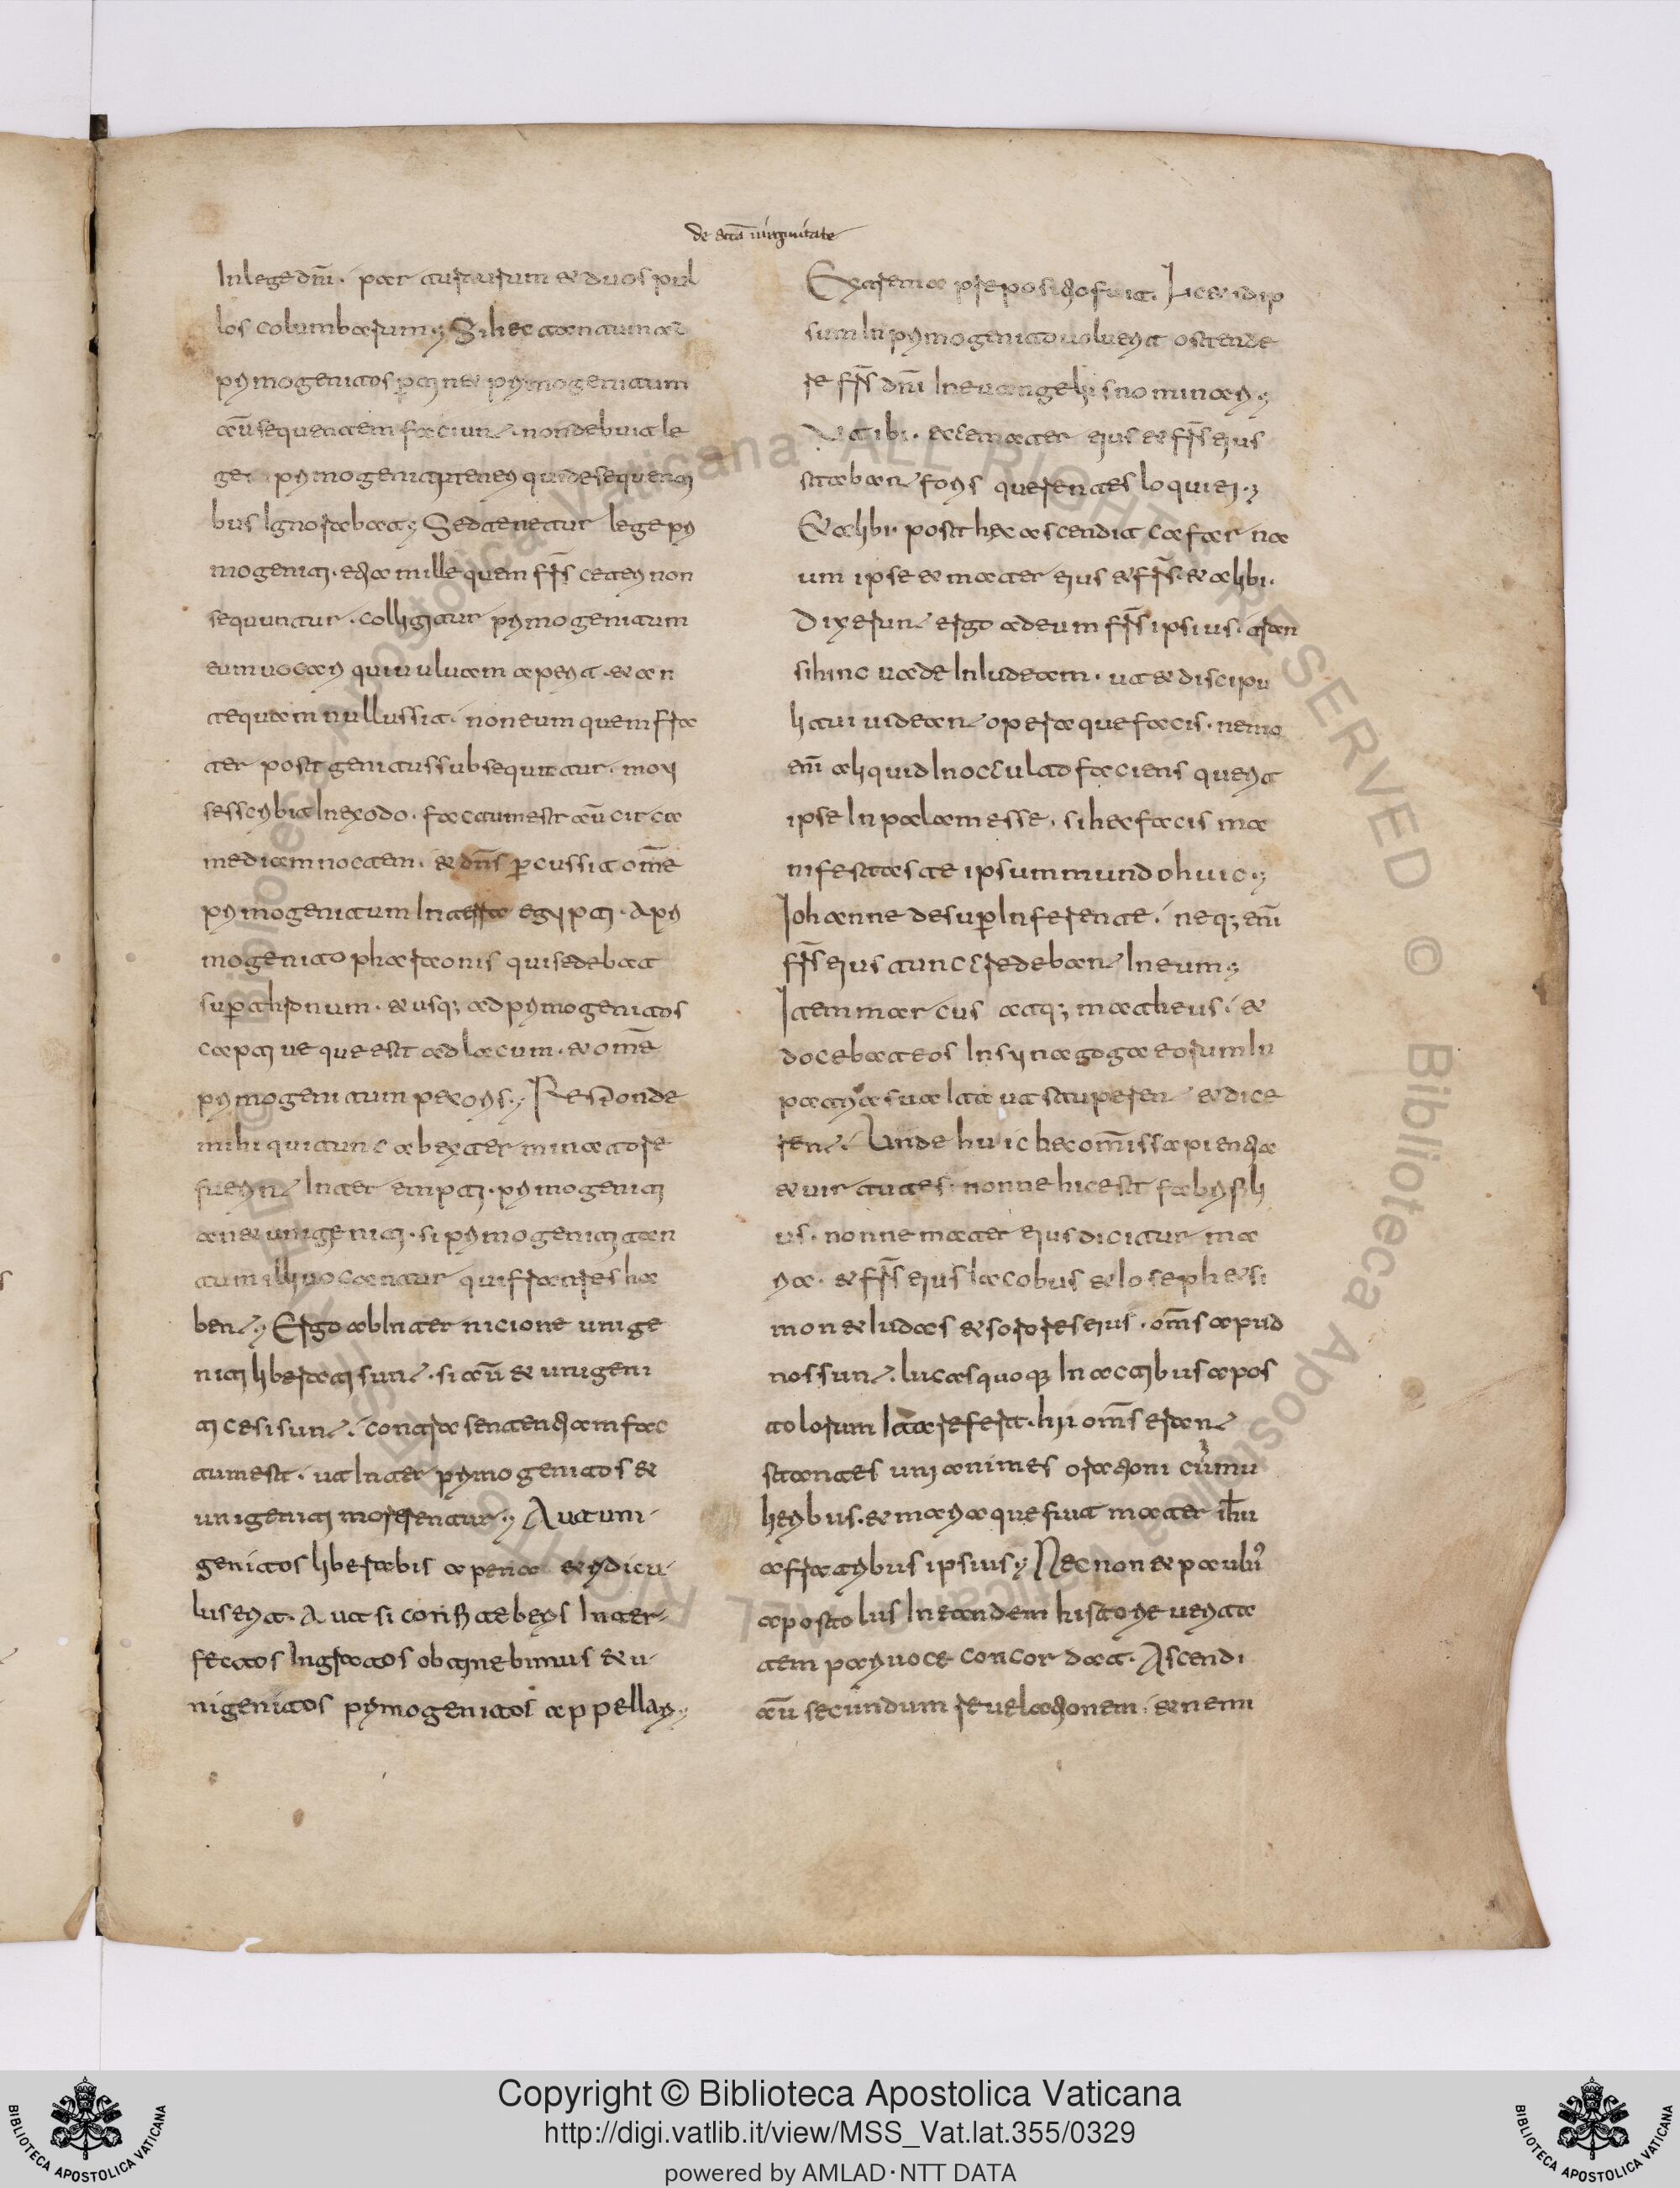 de scā uirginitate
In lege dn̄i. par turturum & duos pul
los columbarum; Si hec tantum ad
primogenitos p̄tinet primogenitum
aū sequentem faciunt. non debuit le
ge primogeniti teneri qui de sequenti
bus ignorabat; Sed tenetur lege pri
mogeniti. etia mille quem fr̄s ceteri non
sequuntur. colligitur primogenitum
eum uocari qui uuluam aperit. & an
te quam nullus sit. non eum quem fra
ter post genitus subsequitur. moy
ses scribit In exodo. factum est aū circa
mediam noctem. & dn̄s p̄cussit om̄e
primogenitum In terra egypti. A pri
mogenito pharaonis qui sedebat
sup̄ thronum. & usq; ad primogenitos
captiue que est ad lacum. & om̄e
primogenitum pecoris; Responde
mihi qui tunc ab exterminatore
fuerint Interempti. primogeniti
an & unigeniti. si primogeniti tan
tum illi uocantur qui fratres ha
bent; Ergo ab Internicione unige
niti liberati sunt. si aū & unigeni
ti cesi sunt. contra sententiam fac
tum est. ut Inter primogenitos &
unigeniti morerentur; Aut uni
genitos liberabis a pena & ridicu
lus erit. Aut si confiteberis Inter
fectos Ingratos obtinebimus & u
nigenitos primogenitos appellari;
Extrema prepositio fuit. Hoc & id ip
sum In primogenito uoluerit ostende
re fr̄s dn̄i In euangeliis nominari;
Ut ibi. ecce mater eius & fr̄s eius
stabant foris querentes loqui ei;
Et alibi. post hec ascendit cafar na
um ipse & mater eius & fr̄s. & alibi.
Dixerunt ergo ad eum fr̄s ipsius. tran
si hinc uade In Iudeam. ut & discipu
li tui uideant opera que facis. nemo
enī aliquid In occulto faciens querit
ipse In palam esse. si hec facis ma
nifesta te ipsum mundo huic;
Iohanne desup̄ Inferente. neq; enī
fr̄s eius tunc credebant In eum;
Item marcus atq; matheus. &
docebat eos In synagoga eorum In
patria sua Ita ut stuperent & dice
rent. Unde huic hec om̄is sapientia
& uirtutes. nonne hic est fabri fili
us. nonne mater eius dicitur ma
ria. & fr̄s eius Iacobus & Ioseph & si
mon & Iudas & sorores eius. om̄s apud
nos sunt. lucas quoq; In actibus apos
tolorum Ita refert. hii om̄s erant
stantes unianimes orationi cū mu
lieribus. & maria que fuit mater ih̄u
& fratribus ipsius; Nec non & paulus
apostolus In eandem historie uerita
tem pari uoce concordat. Ascendi
aū secundum reuelationem. & nemi
Copyright © Biblioteca Apostolica Vaticana
http://digi.vatlib.it/view/MSS_Vat.lat.355/0329
powered by AMLAD·NTT DATA
BIBLIOTECA APOSTOLICA VATICANA
BIBLIOTECA APOSTOLICA VATICANA